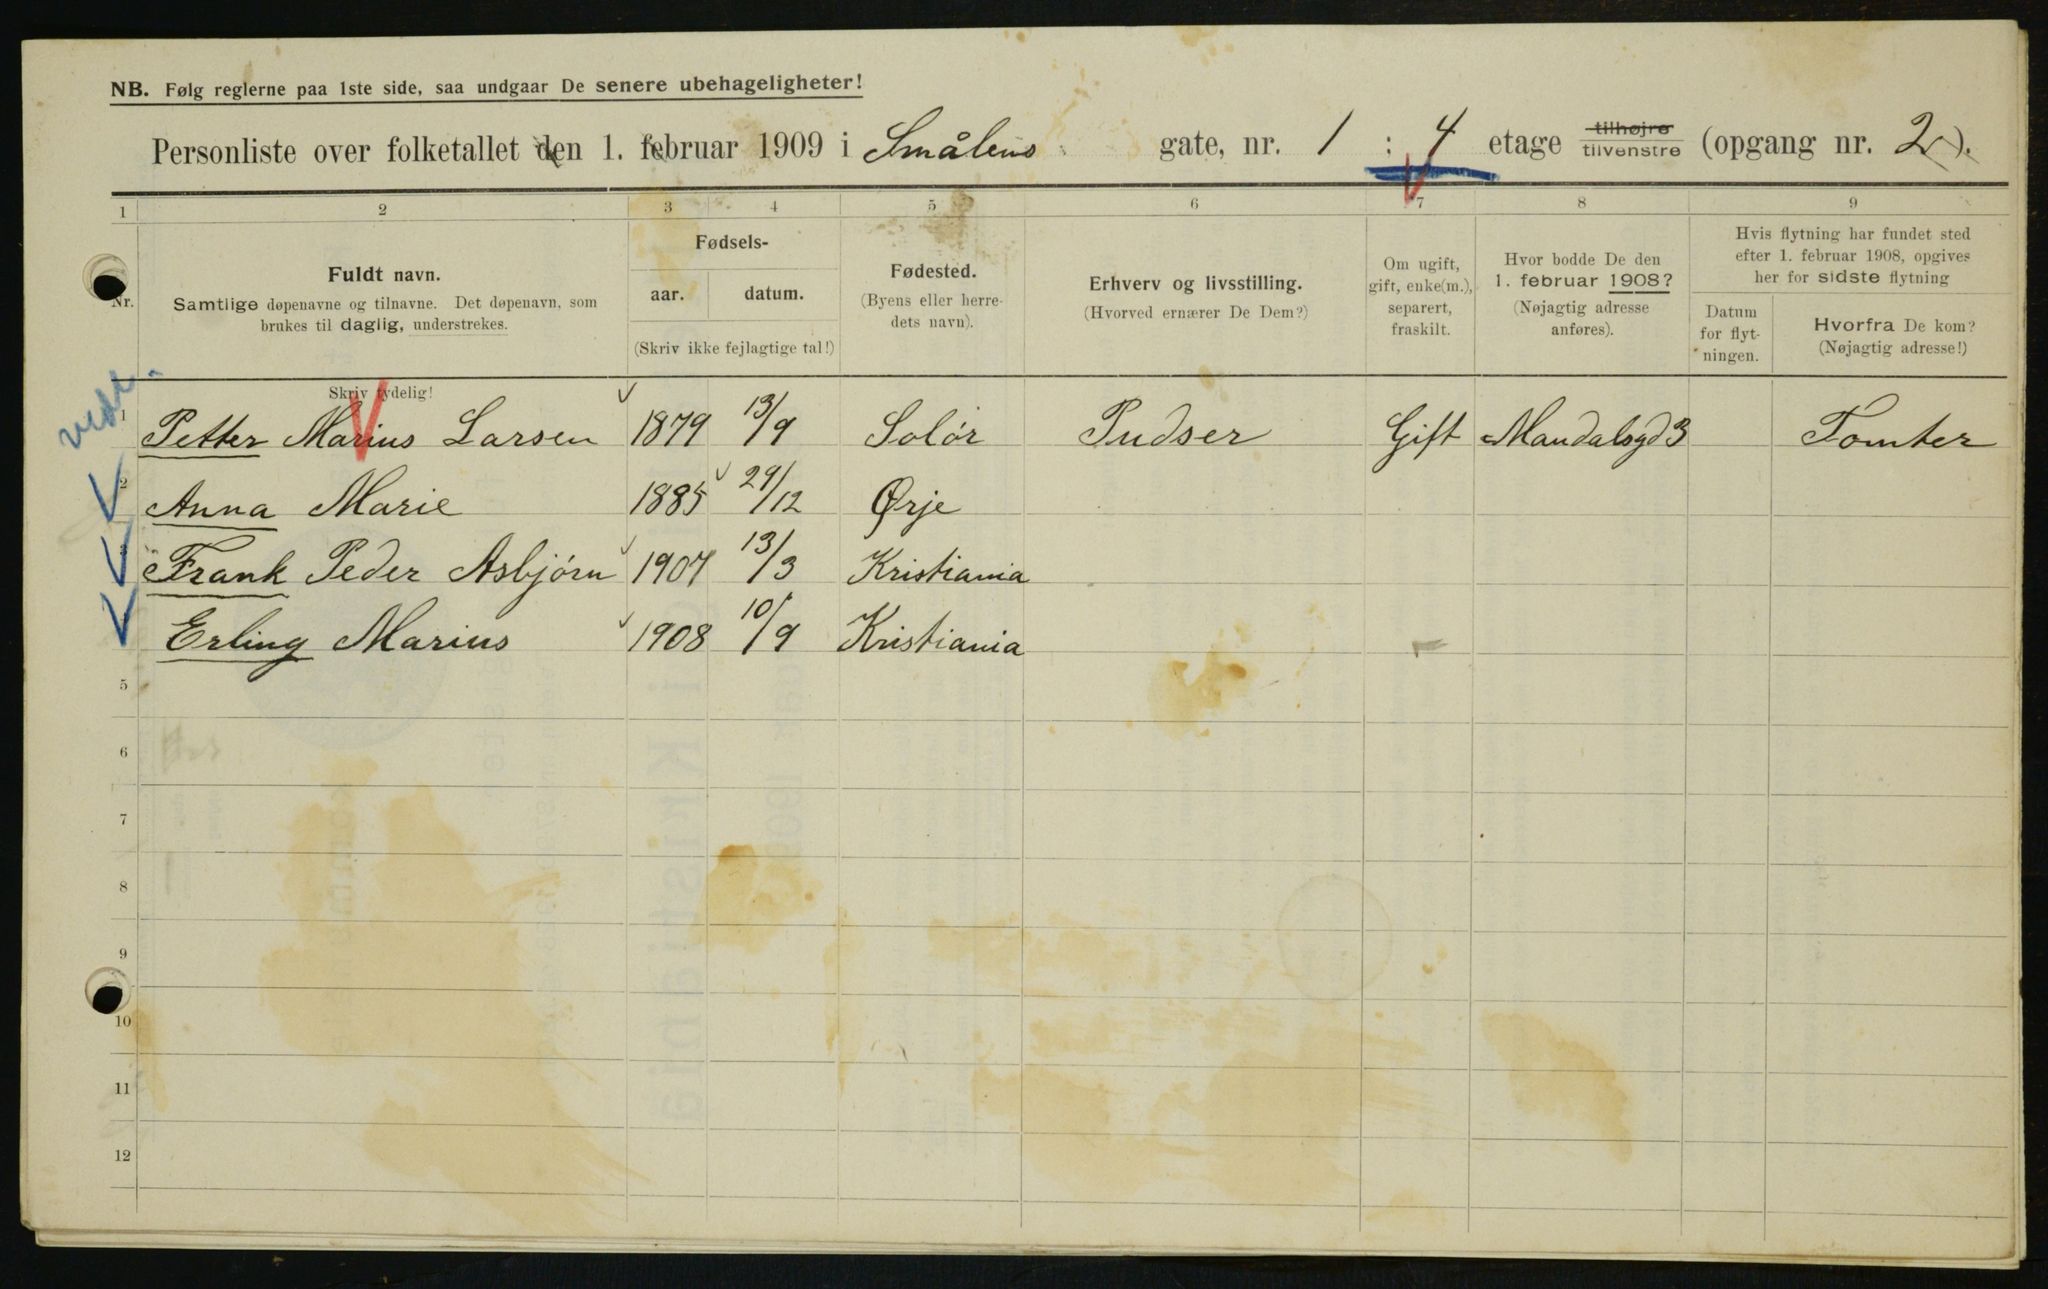 NB. Følg reglerne paa 1ste side, saa undgaar De senere ubehageligheter!
Personliste over folketallet den 1. februar 1909 i Smålens gate, nr. 1 : 4 etage tilhøjre tilvenstre (opgang nr. 2).
1 2 3 4 5 6 7 8 9
Nr.
Fuldt navn.
Samtlige døpenavne og tilnavne. Det døpenavn, som
brukes til daglig, understrekes.
Skriv tydelig!
Fødsels-
aar. datum.
(Skriv ikke fejlagtige tal!)
Fødested.
(Byens eller herre-
dets navn).
Erhverv og livsstilling.
(Hvorved ernærer De Dem?)
Om ugift,
gift, enke(m.),
separert,
fraskilt.
Hvor bodde De den
1. februar 1908?
(Nøjagtig adresse
anføres).
Hvis flytning har fundet sted
efter 1. februar 1908, opgives
her for sidste flytning
Datum
for flyt-
ningen.
Hvorfra De kom?
(Nøjagtig adresse!)
1 Petter Marius Larsen 1879 13/9 Solør Pudser Gift Mandalsgd 3 Tomter
2 Anna Marie 1885 29/12 Ørje
3 Frank Peder Asbjørn 1907 13/3 Kristiania
Erling Marius 1908 10/9 Kristiania
5
6
7
8
9
10
11
12